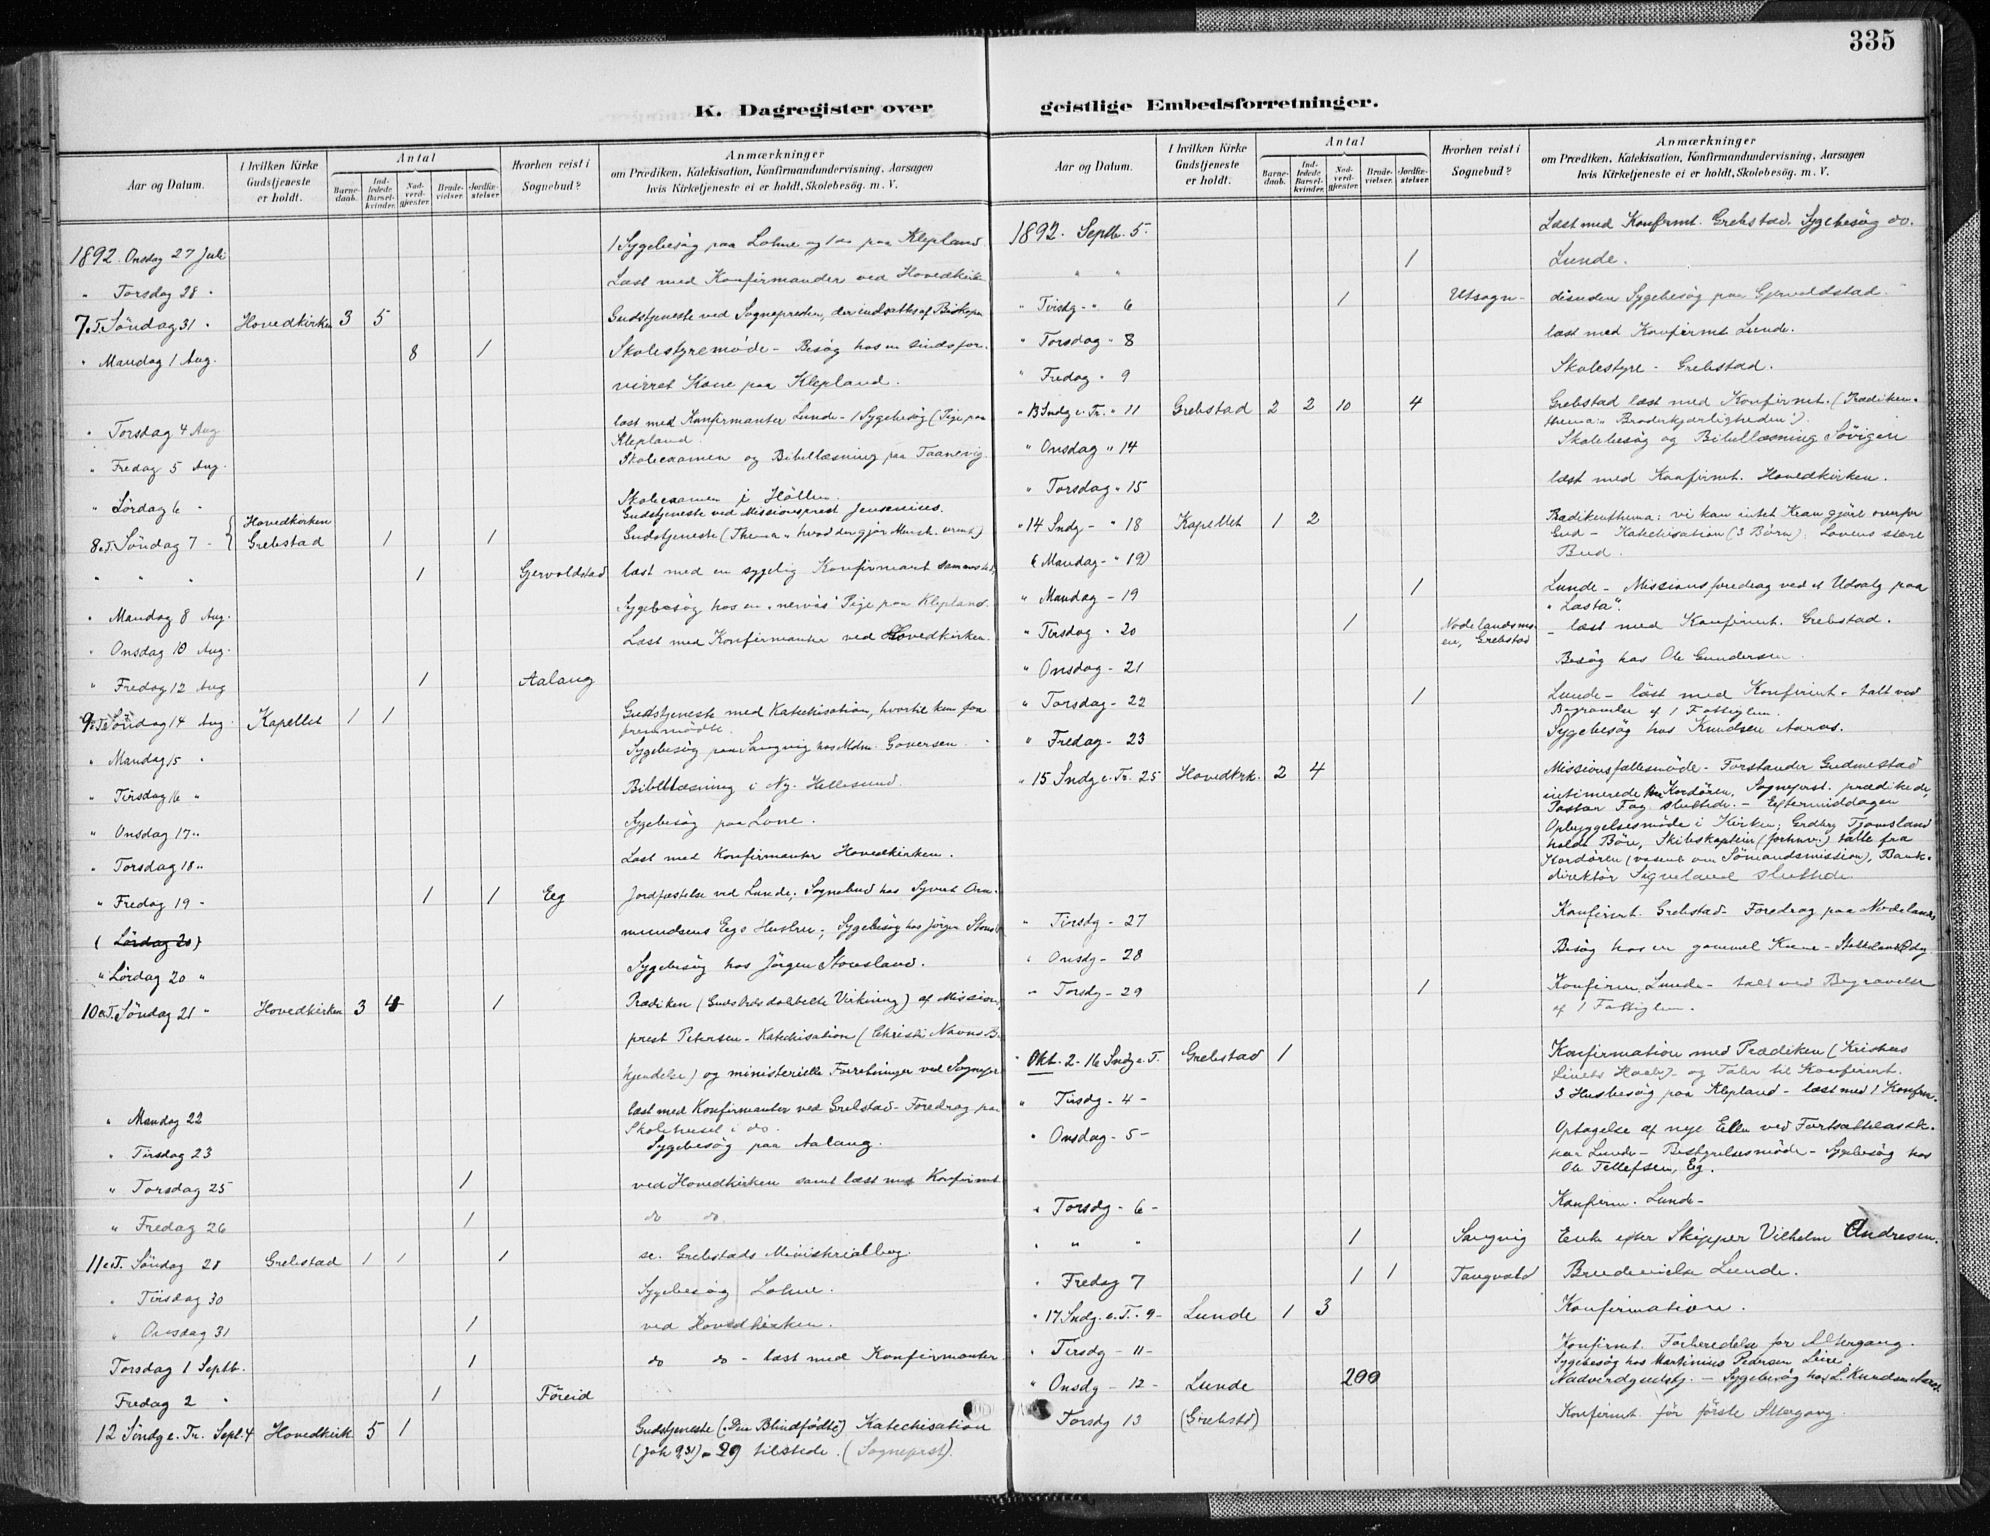 335
K. Dagregister over geistlige Embedsforretninger.
Aar og Datum.
I hvilken Kirke Gudstjeneste er holdt.
Antal
Barnedaab.
Indledede Barselkvinder.
Nadverdgjester.
Brudevielser.
Jordfæstelser
Hvorhen reist i Sognebud?
Anmærkninger
om Prædiken, Katekisation, Konfirmandundervisning, Aarsagen
hvis Kirketjeneste ei er holdt, Skolebesøg. m. V.
1892. Onsdag 27 Juli 1 Sygebesøg paa Lohne og 1 do paa Klepland.
" Torsdag 28 " Læst med Konfirmander ved Hovedkirk
7.T. Söndag 31 " Hovedkirken 3 5 Gudstjeneste ved Sognepresten, der indsattes af Biskopen
" Mandag 1 Aug. 8 1 Skolestyremøde - Besøg hos en sindsfor-
virret Kone paa Klepland.
" Torsdag 4 Aug læst med Konfirmanter Lunde - 1 Sygebesøg (Pige paa
Klepland.
" Fredag 5 Aug. Skoleexamen og Bibellæsning paa Taanevig.
" Lördag 6 " Skoleexamen i Höllen.
Hovedkirken Gudstjeneste ved Missionsprest Jensenius.
8.T. Söndag 7 - Grebstad 1 1 Gudstjeneste (Thema "hvad der gjör Mensk. urent)
" " " 1 Gjervoldstad læst med en sygelig Konfirmant sammesteds
" Mandag 8 Aug. Sygebesøg hos en "nervös" Pige paa Klepland.
" Onsdag 10 Aug. Læst med Konfirmanter ved Hovedkirken.
" Fredag 12 Aug 1 Aalang
9.T. Söndag 14 Aug. Kapellet 1 1 Gudstjeneste med Katechisation, hvortil kun faa
fremmødte.
" Mandag 15 " Sygebesøg paa Langvig hos Mdm. Goversen.
" Tirsdag 16 " Bibellæsning i Ny. Hellesund.
" Onsdag 17 " Sygebesøg paa Lone.
" Torsdag 18 " Læst med Konfirmanter Hovedkirken.
" Fredag 19 - 1 1 Eeg Jordfæstelse ved Lunde; Sognebud hos Syvert Om-
(Lördag 20) mundsens Eegs Hustru; Sygebesøg hos Jörgen Stousl
" Lördag 20 " Sygebesøg hos Jörgen Stousland.
10.e.T. Söndag 21 " Hovedkirken 3 4 1 Prædiken (Guds Ords dobbelte Virkning) af Missions-
prest Petersen - Katechisation (Christi Navns B.
kjendelse) og ministerielle Forretninger ved Sognepr
" Mandag 22 læst med Konfirmanter ved Grebstad - Foredrag paa
Skolehuset i do.
" Tirsdag 23 Sygebesøg paa Aalang.
" Torsdag 25 1 ved Hovedkirken samt læst med Konfirmt.
" Fredag 26 1 do do.
11.e.T. Söndag 28 Grebstad 1 1 1 se. Grebstads Ministerialbog.
" Tirsdag 30 Sygebesøg Lohne.
" Onsdag 31 1 ved Hovedkirken.
Torsdag 1 Septb. 1 do do - læst med Konfirmanter
Fredag 2 " 1 Föreid
12 Söndg e. Tr. Sept. 4 Hovedkirk. 5 1 Gudstjeneste (Den Blindfödte) Katechisation
(Joh 9 31) - 29 tilstede. (Sogneprst).
Aar og Datum.
I hvilken Kirke Gudstjeneste er holdt.
Antal
Barnedaab.
Indledede Barselkvinder.
Nadverdgjester.
Brudevielser.
Jordfæstelser
Hvorhen reist i Sognebud?
Anmærkninger
om Prædiken, Katekisation, Konfirmandundervisning, Aarsagen
hvis Kirketjeneste ei er holdt, Skolebesøg. m. V.
1892. Septb. 5. Læst med Konfirmt. Grebstad. Sygebesøg do.
" " 1 Lunde.
" Tirsdg - " 6 1 Utsogn- desuden Sygebesøg paa Gjervoldstad.
" Torsdag " 8 læst med Konfirmt Lunde.
" Fredag " 9 Skolestyre - Grebstad.
" 13 Sndg e. Tr. " 11 Grebstad 2 2 10 4 Grebstad læst med Konfirmt. (Prædiken-
thema: "Broderkjærligheden").
" Onsdag " 14 Skolebesøg og Bibellæsning Sövigen
" Torsdag " 15 læst med Konfirmt. Hovedkirken.
" 14 Sndg - " 18 Kapellet 1 2 Prædikenthema: vi kan intet Krav gjöre overfor
Gud - Katechisation (3 Børn): Lovens störe
Bud.
(Mandag - " 19)
" Mandag - 19 1 Lunde - Missionsforedrag ved et Udsalg paa
"Lasta".
" Tirsdag " 20 1 Nodelandsmoen, Grebstad - læst med Konfirmt. Grebstad.
" Onsdag - 21 Besøg hos Ole Gundersen.
" Torsdag - 22 1 Lunde - læst med Konfirmt. - talt ved
Begravelse af 1 Fattiglem.
" Fredag - 23 Sygebesøg hos Knudsen Aaros.
" 15 Sndg e. Tr. 25 Hovedkrk. 2 4 Missionsfællesmöde - Forstander Gudmestad
intimerede fra Kordören, Sogneprst. prædikede,
Pastor Fog sluttede. - Eftermiddagen
Opbyggelsesmöde i Kirken; Grdbrg Tjomsland
holdt Bön, Skibskaptein (forhenv.) talte fra
Kordören (væsentl. om Sömandsmission), Bank-
direktör Sigveland sluttede.
" Tirsdg - 27 Konfirmt. Grebstad - Foredrag paa Nodelands
" Onsdg - 28 Besøg hos en gammel Kone - Odg
" Torsdg - 29 1 Konfirm. Lunde - talt ved Begravelse
af 1 Fattiglem.
" Okt. 2 - 16 Sndg e. T. Grebstad 1 Konfirmation med Prædiken (Kristens
Livets Haab) - og Taler til Konfirmt.
" Tirsdg - 4 - 3 Husbesøg paa Klepland - læst med 1 Konfrm.
" Onsdag - 5 - Optagelse af nye Elev ved Fortsættelsessk.
paa Lunde - Bestyrelsesmöde - Sygebesøg hos
Ole Tellefsen, Eg.
" Torsdg - 6 - Konfirm. Lunde -
" " " 1 Langvig Enke efter Skipper Vilhelm Andresen.
" Fredag 7 1 1 Tangvald Brudevielse Lunde.
" 17 Sndg. e. T. - 9 - Lunde 1 3 Konfirmation.
" Tirsdg - 11 - Konfirmt. Forberedelse for Altergang.
Sygebesøg hos Martinius Pedersen Leire.
" Onsdg - 12 - Lunde 200 Nadverdgudstj. - Sygebesøg hos L. Kundsen Aaros
Torsdg 13 (Grebstd) Konfirmt. för förste Altergang.